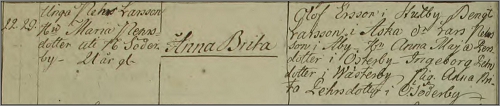 22. 29. Unga Pehr Larsson
Hu Maria Pehrs-
dotter uti N. Söder-
by - 21 år gl.
Anna Brita
Olof Ersson i Husby Bengt
Larsson i Aska Dr Lars Pehrs-
son i Åby. Hu Anna Maja Pers
dotter i Österby Ingeborg Pehrs
dotter i Wästerby Pig. Anna Bri
ta Pehrsdotter i Söderby